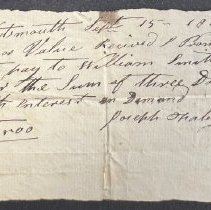 tsmouth Sept 15 - 18
or Value Recived I Prom
pay to William Smit
the Sum of three D
h Interest on Demand
Joseph
$3.00